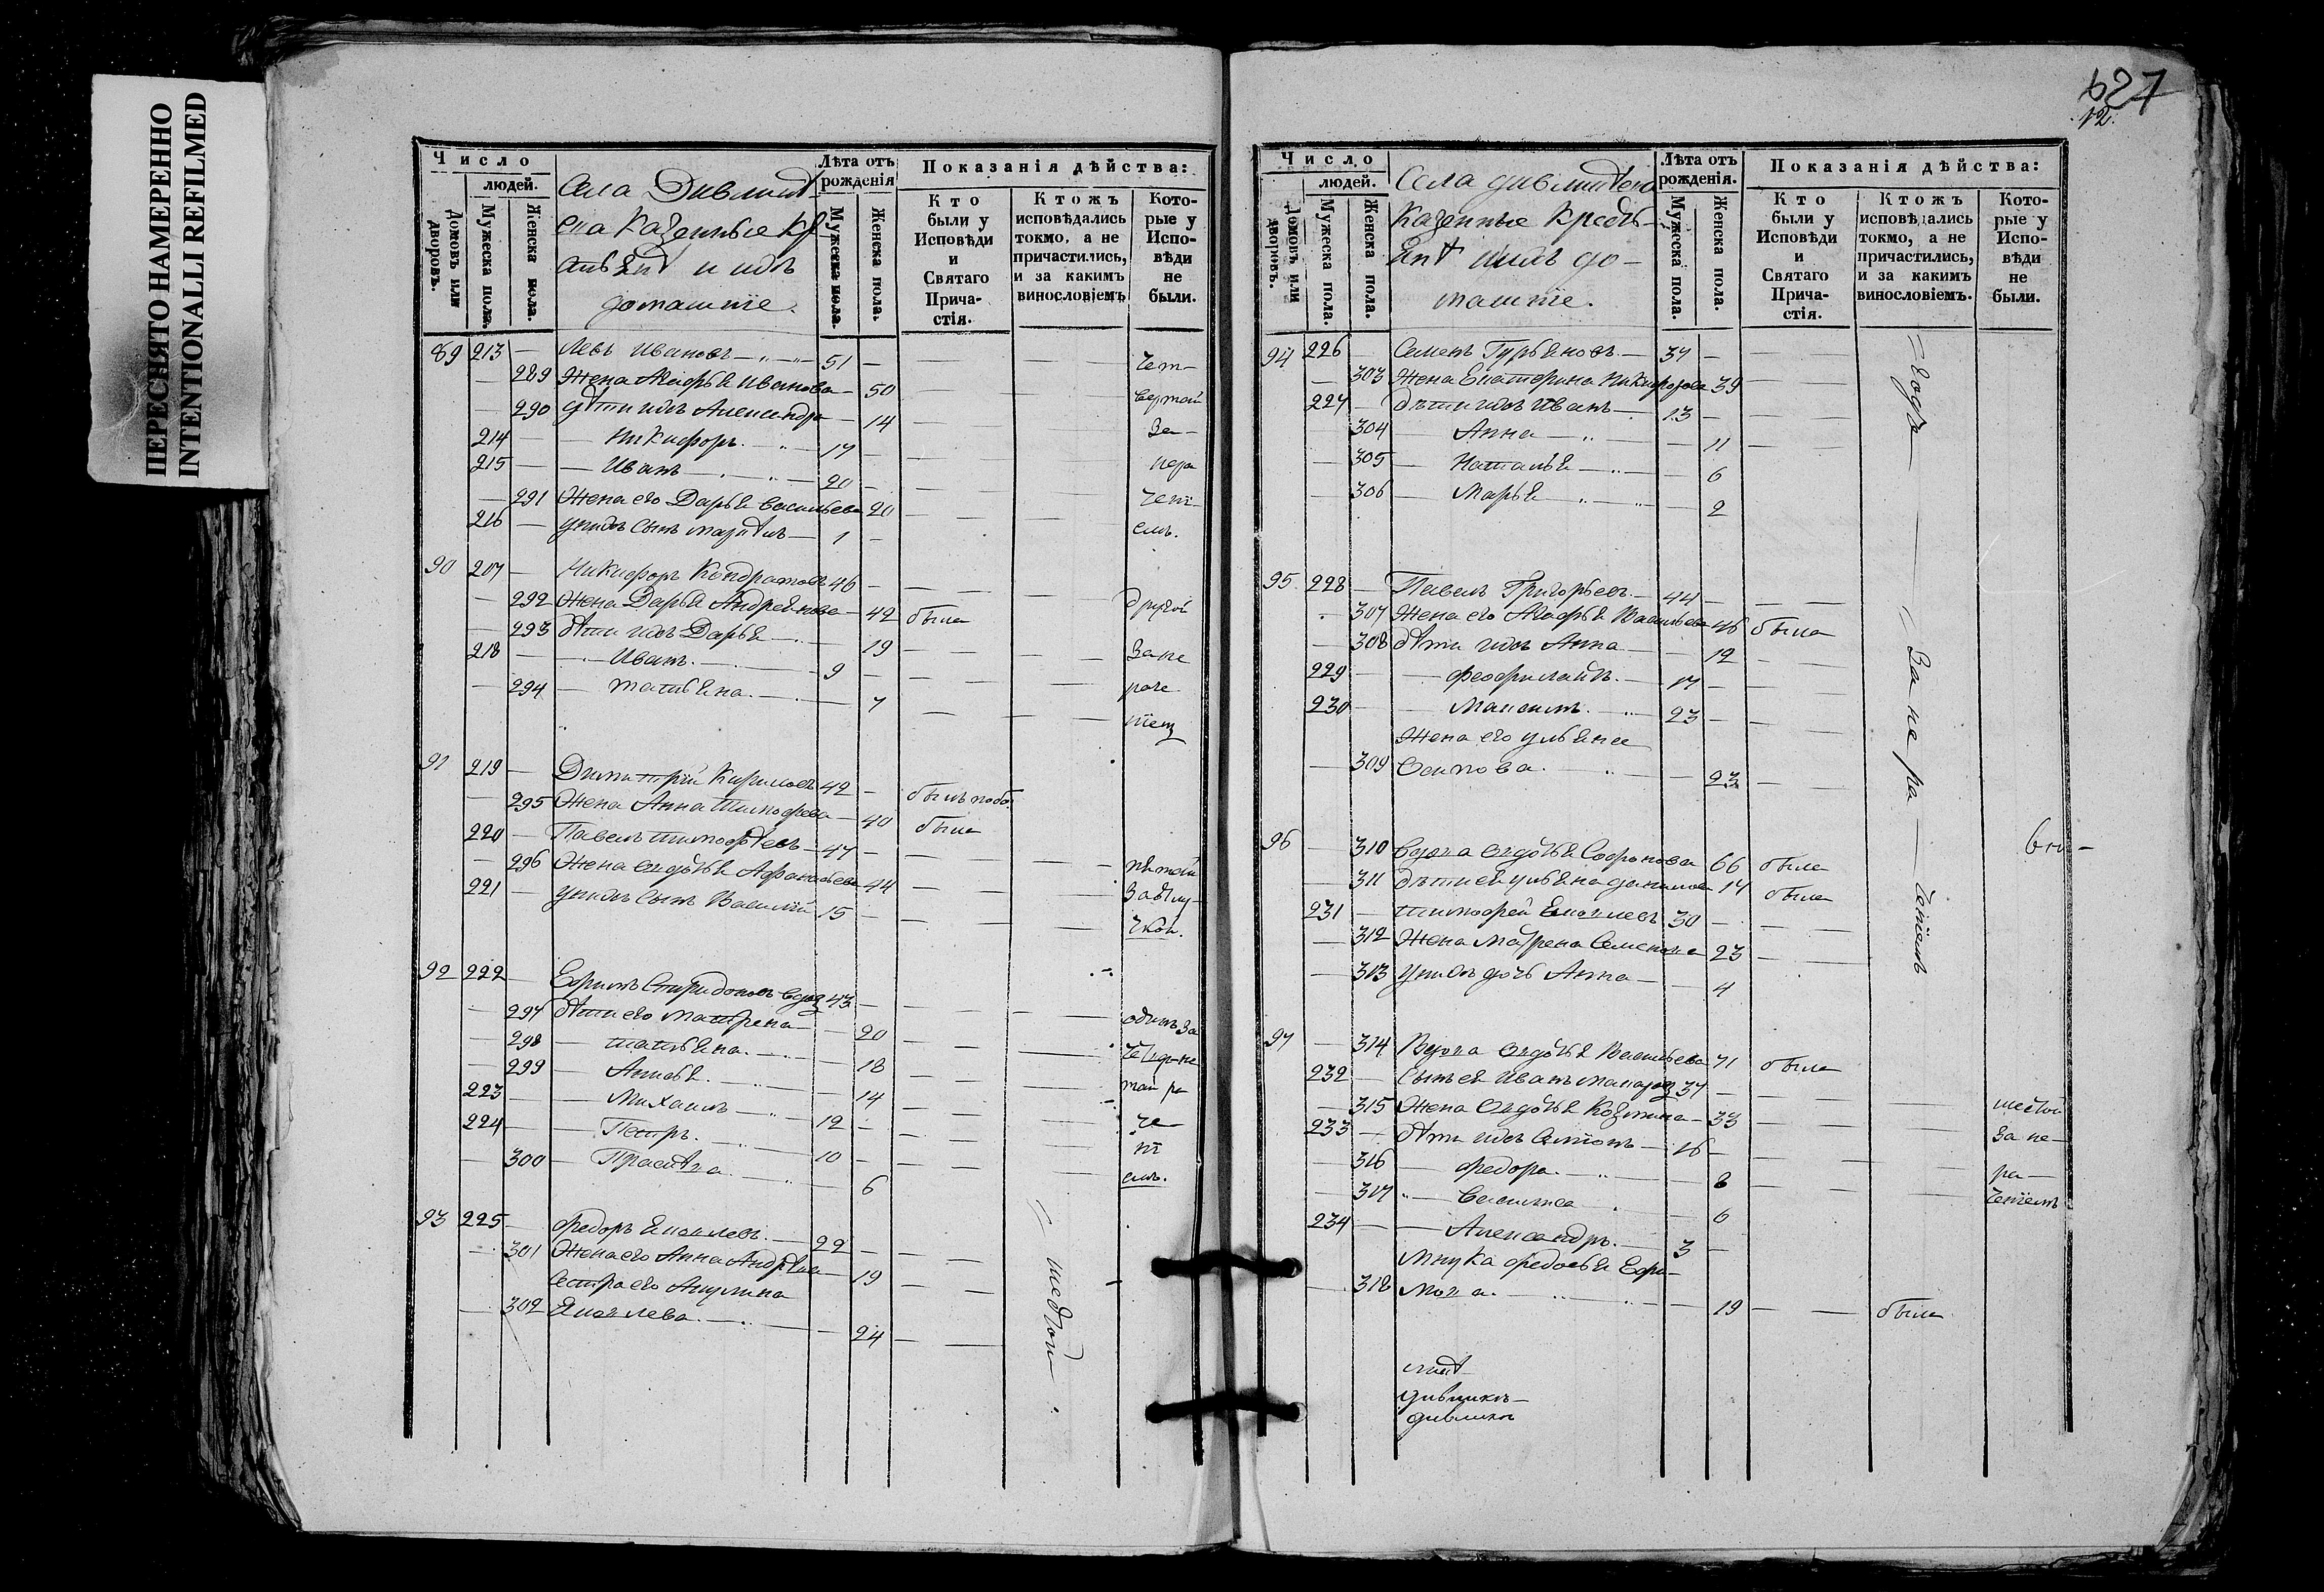 ПЕРЕСНЯТО НАМЕРЕННО
INTENTIONALLI REFILMED
627
12.
Число
людей.
Домовъ или дворовъ.
Мужеска пола.
Женска пола.
Села
Казенные Кр
и ихъ
домашнie.
Лѣта отъ рожденія
Мужеска пола.
Женска пола.
Показанія дѣйства:
Кто были у Исповѣди и Святаго Прича-стія.
Ктожъ исповѣдались токмо, а не причастились, и за какимъ винословіемъ
Кото-рые у Испо-вѣди не были.
89 213 — Левъ Ивановъ — 51 — Чет-
— 289 Жена Агафья Иванова — 50 вертой
— 290 дѣти ихъ Александра — 14 За-
214 — Никифоръ — 17 — нера
215 — Иванъ — 20 —
— 291 Жена его Дарья Васильева 20
216 — у нихъ сынъ — 1 — емъ.
90 217 — Никифоръ Кондратовъ 46 —
— 292 Жена Дарья Андреянова — 42 была другой
— 293 дѣти ихъ Дарья — 19
218 — Иванъ. — 9 — За не
— 294 — Татьяна. — 7 раче
91 219 — Димитрій Кириловъ 42 — былъ
— 295 Жена Анна Тимофеева — 40 была
220 — Павелъ Тимофѣевъ — 47 —
— 296 Жена Овдотья Афанасьева 44 пятой
221 — у нихъ сынъ Василій 15 —
92 222 — Ефимъ Спиридоновъ вдов 43 —
— 297 дѣти его Матрена — 20 одинъ за
— 298 — Татьяна. — 18
— 299 — Анисья. — 14
223 — Михаилъ — 12 — че
224 — Петръ. — 10 — нi
— 300 — Прасковья — 6 емъ.
93 225 — Федоръ Яковлевъ. — 22 —
— 301 Жена его Анна Андрѣева — 19
Сестра его Акулина
— 302 Яковлева. — 24 —
шестой
Число
людей.
Домовъ или дворовъ.
Мужеска пола.
Женска пола.
Села
Казенные Кресть-
янѣ ихъ до-
машнie.
Лѣта отъ рожденія.
Мужеска пола.
Женска пола.
Показанія дѣйства:
Кто были у Исповѣди и Святаго Прича-стія.
Ктожъ исповѣдались токмо, а не причастились, и за какимъ винословіемъ.
Кото-рые у Испо-вѣди не были.
94 226 — Семенъ Гурьяновъ — 37 —
— 303 Жена Екатерина Никифорова 39
227 — дѣти ихъ Иванъ — 13 —
304 Анна — 11
— 305 — Наталья — 6
— 306 — Марья — 2
95 228 — Павелъ Григорьевъ — 44 —
307 Жена его Агафья Васильева 46 была
— 308 дѣти ихъ Анна — 12
229 — Феофилактъ. — 17 —
230 — Максимъ. — 23 —
Жена его Ульяна
— 309 Осипова. — 23 —
годъ — За нера — ченіемъ
96 — 310 Вдова Овдотья Софронова 66 была
— 311 дѣти ея Ульяна Данилова 17 была
231 — Тимофей Яковлевъ 30 —
— 312 Жена Матрена Семенова 23
— 313 у нихъ дочь Анна — 4
97 — 314 Вдова Овдотья Васильева 71 была
232 — Сынъ ея Иванъ 37 —
— 315 Жена Овдотья Козмина — 33 шестой
233 — дѣти ихъ Семіонъ — 16 — За не-
— 316 — Федора. — 8 ра-
— 317 — Василиса — 6 ченіемъ
234 — Александръ. — 3 —
Внука Федосья Ефи-
— 318 мова. — 19 — была